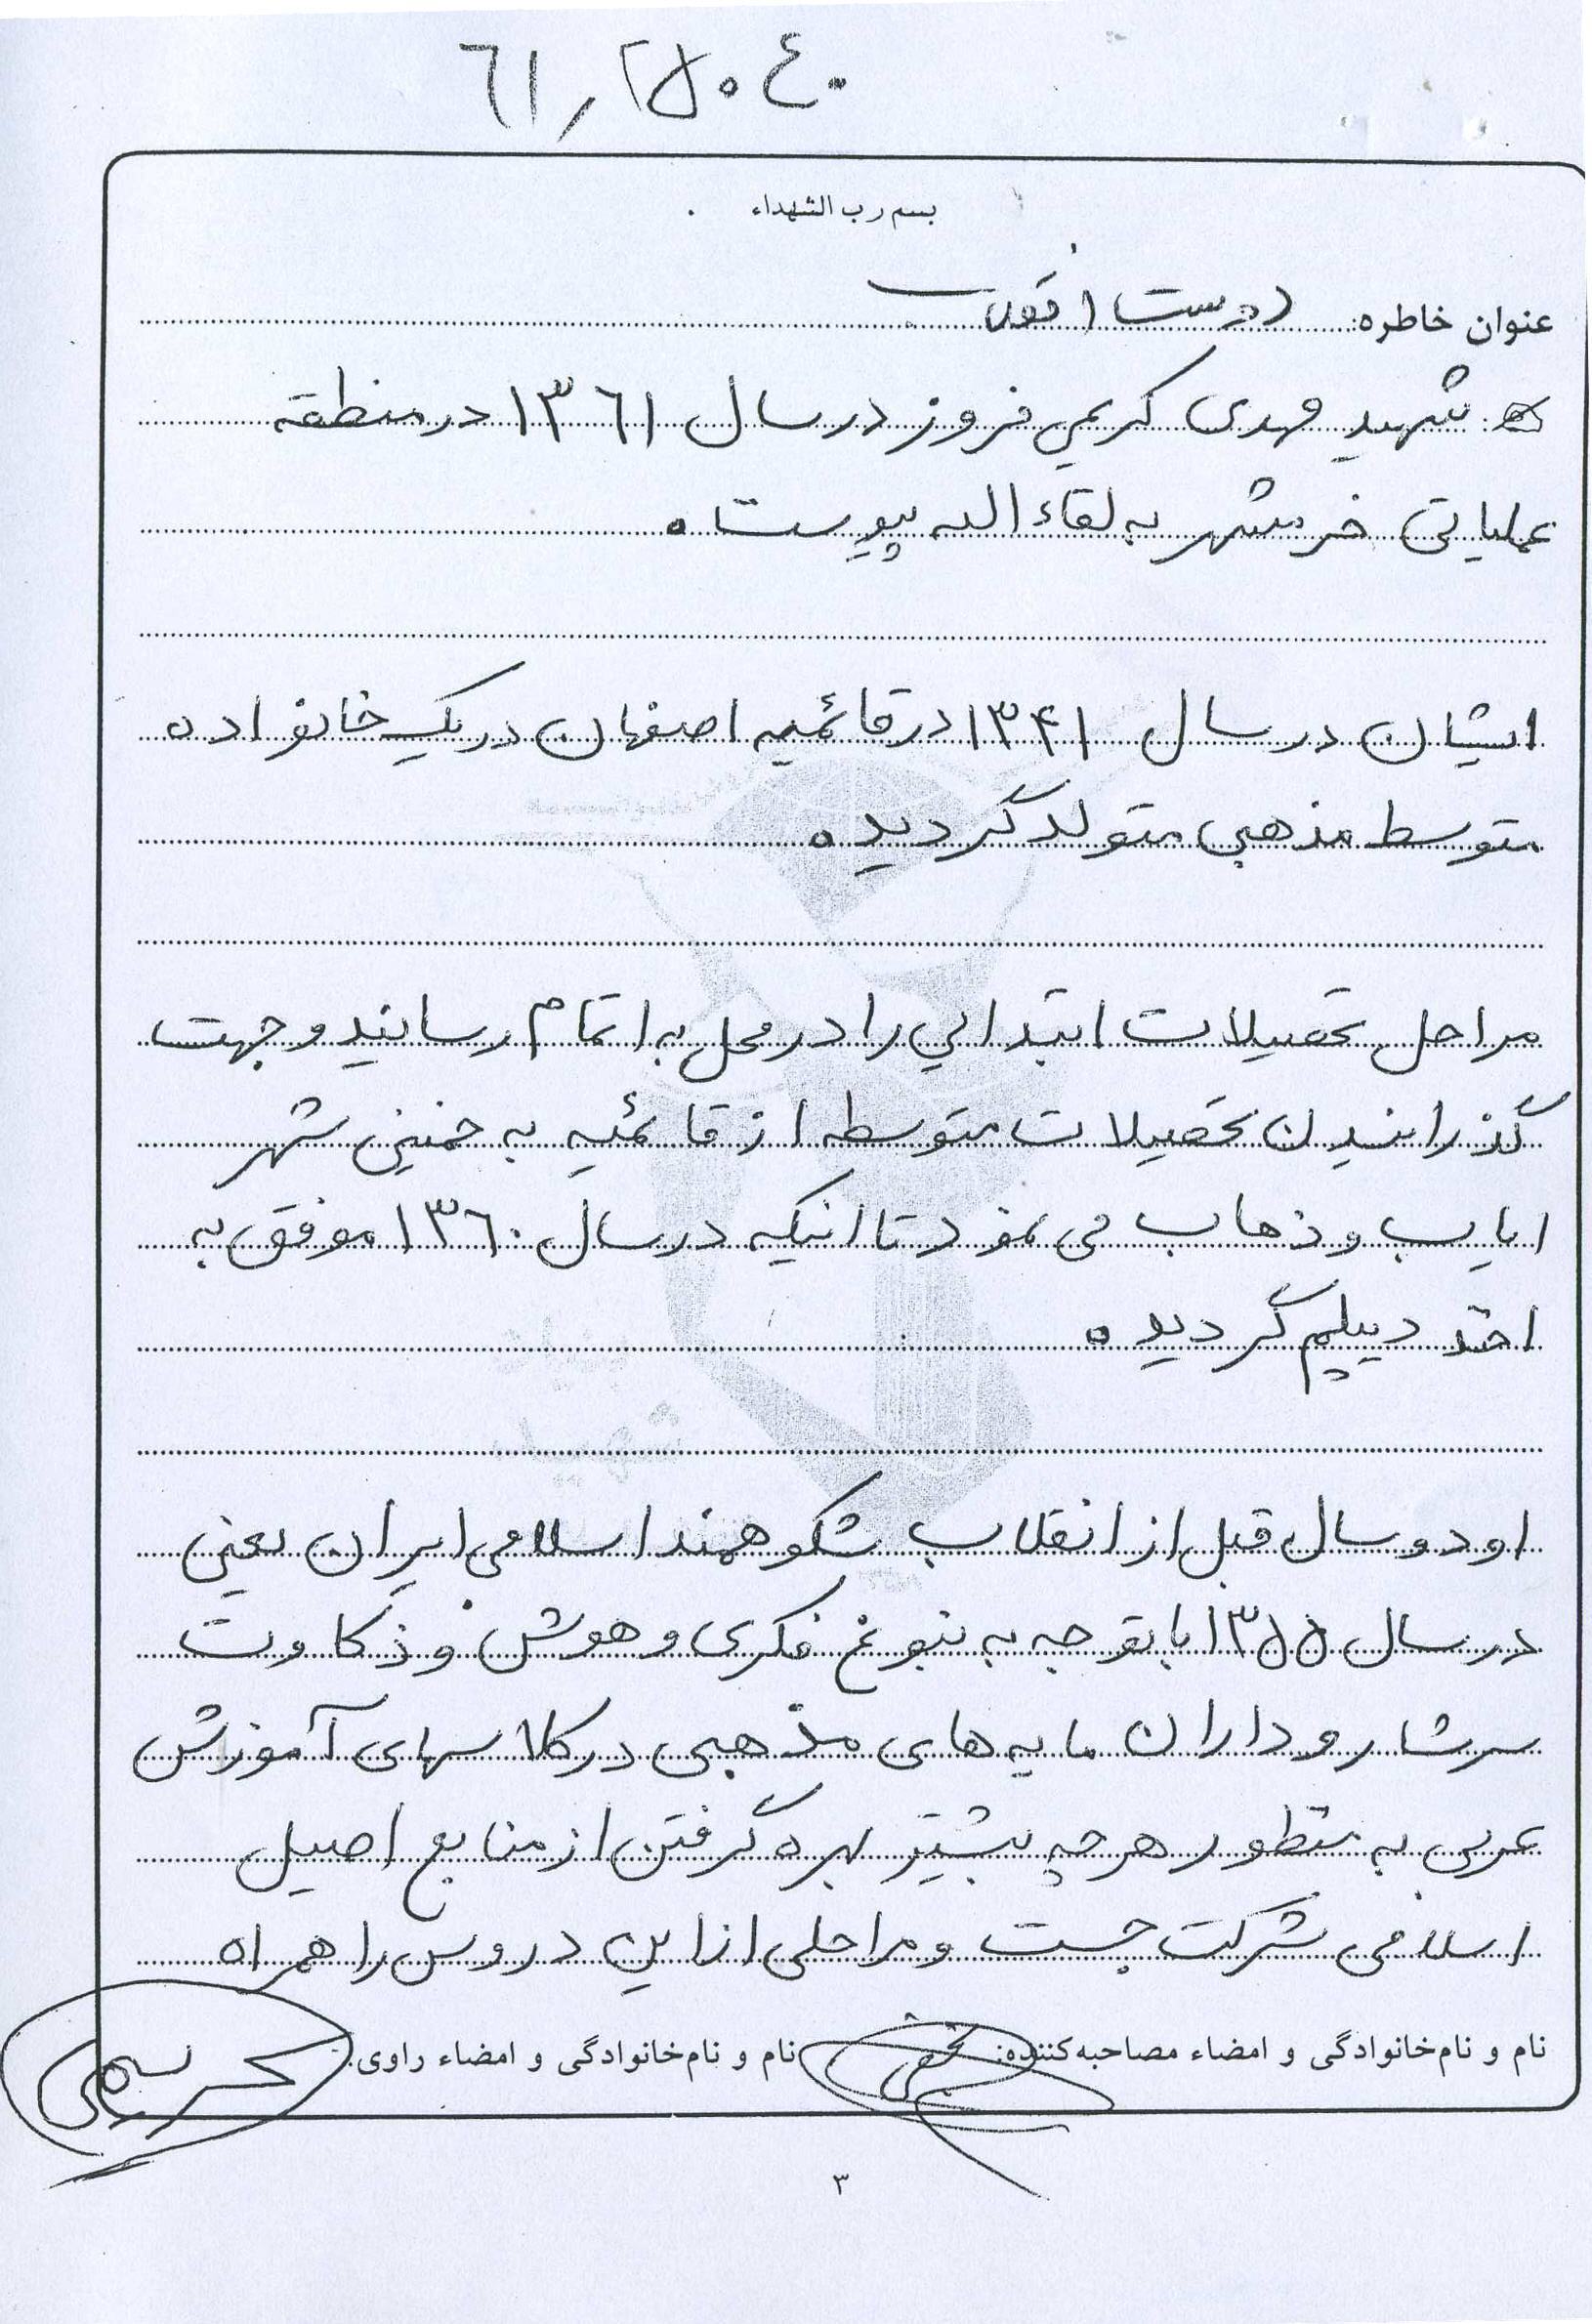 ٦١٫٢٥٠٤٠
بسم رب الشهداء
عنوان خاطره: دوست اخوت
شهید مهدی کریمی فروز در سال ۱۳٦۱ در منطقه
عملیاتی خرمشهر به لقاء الله پیوست.
ایشان در سال ۱۳۴۱ در قائمیه اصفهان در یک خانواده
متوسط مذهبی متولد گردید.
مراحل تحصیلات ابتدایی را در محل به اتمام رسانید و جهت
گذراندن تحصیلات متوسطه از قائمیه به خمینی شهر
ایاب و ذهاب می نمود تا اینکه در سال ۱۳٦۰ موفق به
اخذ دیپلم گردید.
او دو سال قبل از انقلاب شکوهمند اسلامی ایران یعنی
در سال ۱۳۵۵ با توجه به نبوغ فکری و هوش و ذکاوت
سرشار و داران مایه های مذهبی در کلاسهای آموزش
عربی به منظور هر چه بیشتر بهره گرفتن از منابع اصیل
اسلامی شرکت جست و مراحلی از این دروس را همراه
نام و نام‌خانوادگی و امضاء مصاحبه‌کننده: نام و نام‌خانوادگی و امضاء راوی: کریمی
۳